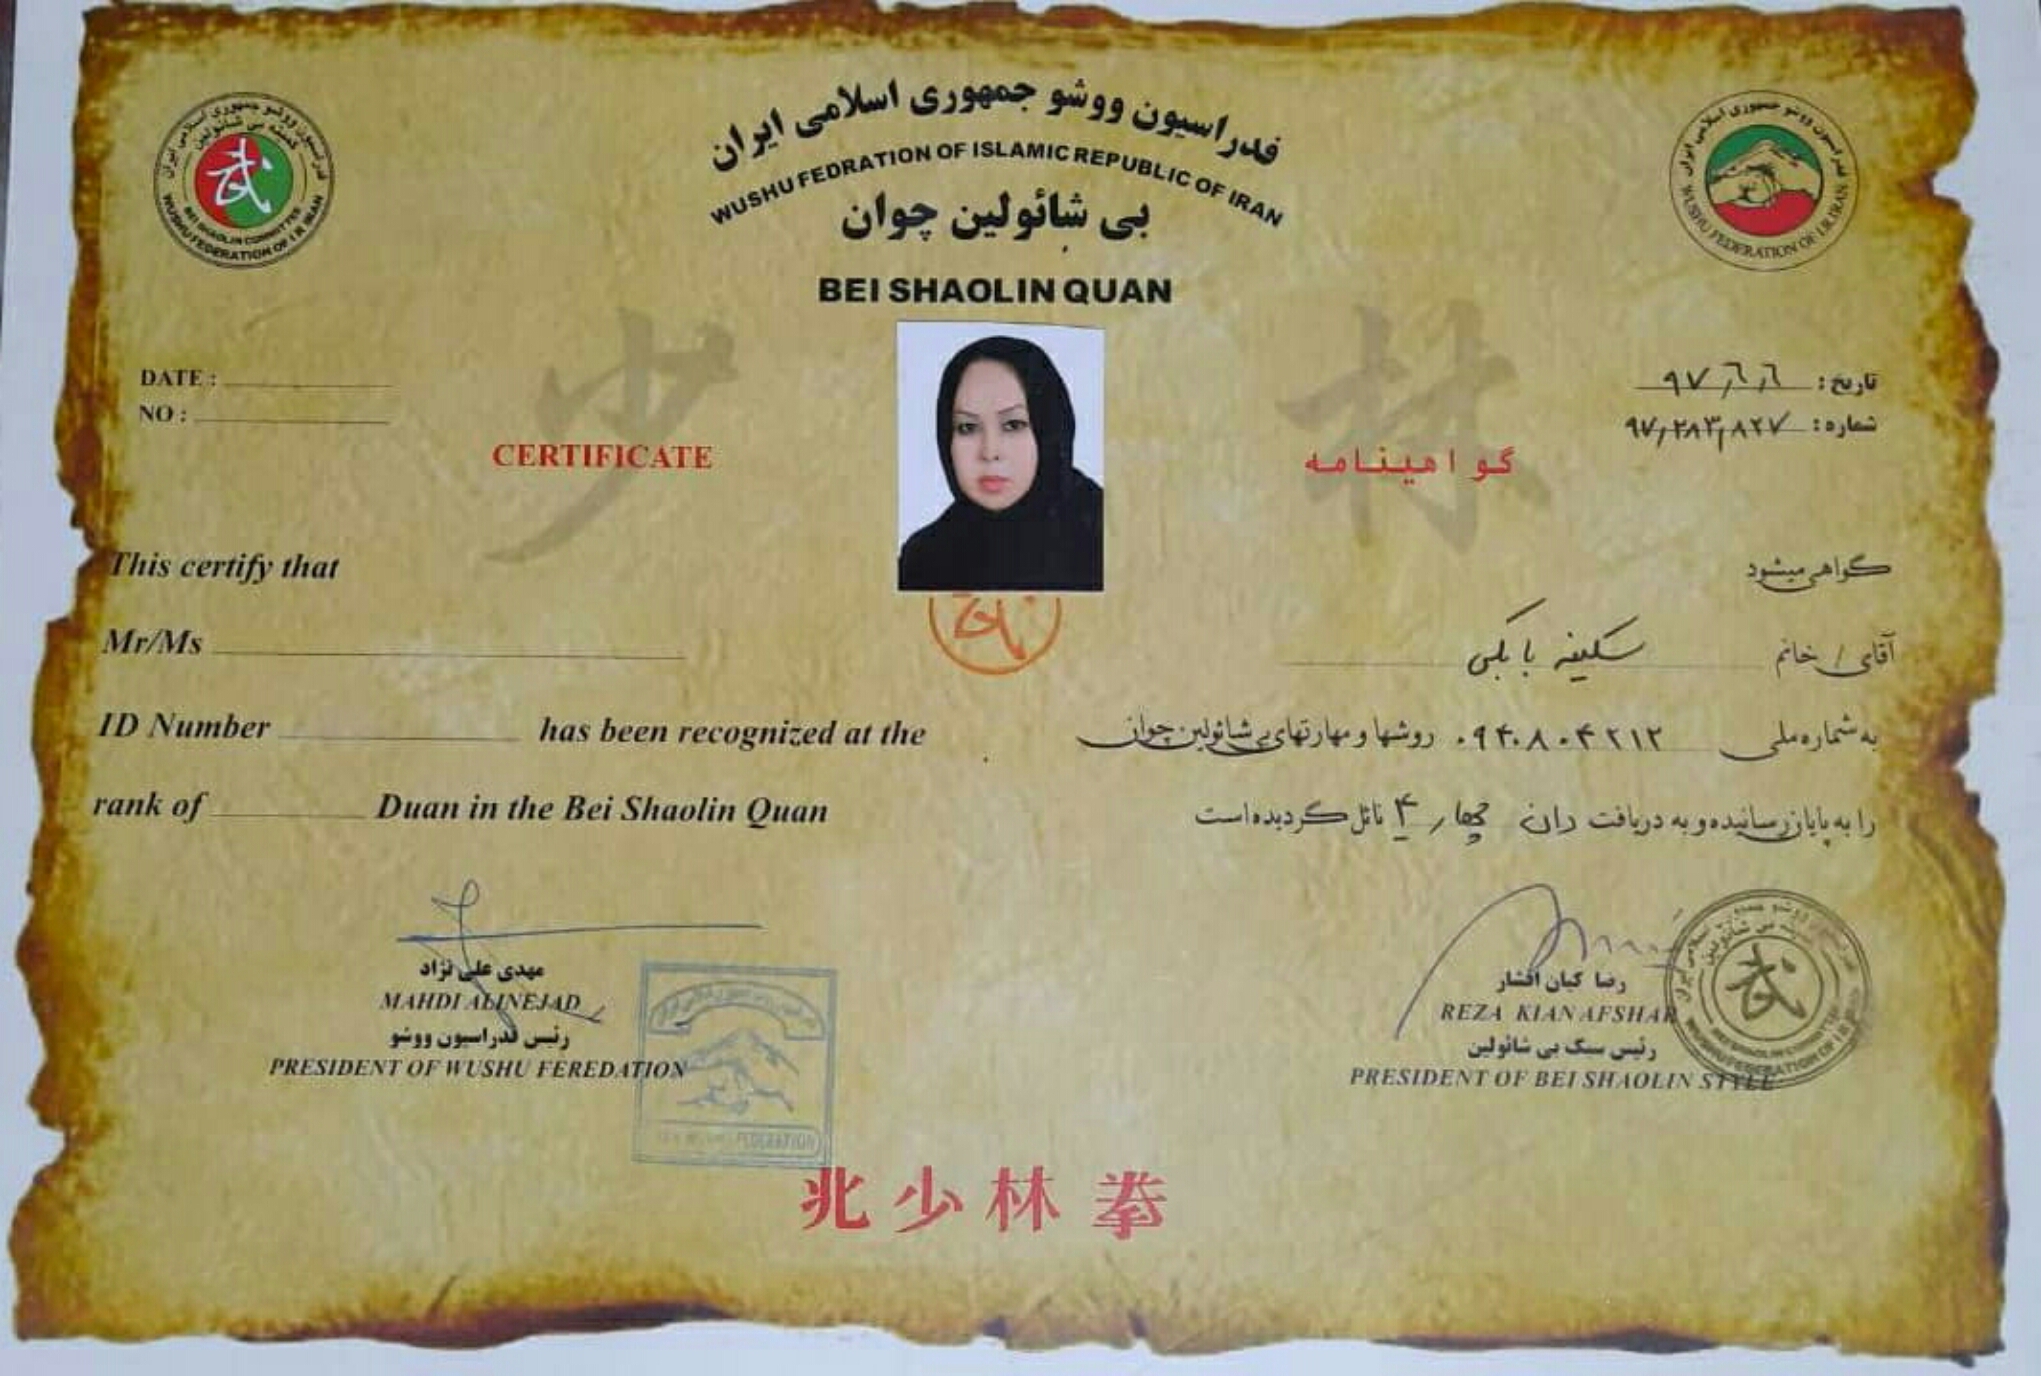 فدراسیون ووشو جمهوری اسلامی ایران
WUSHU FEDRATION OF ISLAMIC REPUBLIC OF IRAN
بی شائولین چوان
BEI SHAOLIN QUAN
فدراسیون ووشو جمهوری اسلامی ایران
کمیته بی شائولین
BEI SHAOLIN COMMITTEE
WUSHU FEDERATION OF I.R IRAN
فدراسیون ووشو جمهوری اسلامی ایران
WUSHU FEDERATION OF I.R.IRAN
少 林
DATE :
NO :
تاریخ : ۹۷٫۶٫۶
شماره : ۹۷٫۲۸۳٫۸۲۷
CERTIFICATE
گواهینامه
This certify that
گواهی میشود
Mr/Ms
آقای / خانم سکینه بابکی
ID Number has been recognized at the
به شماره ملی ۰۹۴۰۸۰۴۲۱۲ روشها و مهارتهای بی شائولین چوان
rank of Duan in the Bei Shaolin Quan
را به پایان رسانیده و به دریافت دان چهار ۴ نائل گردیده است
مهدی علی نژاد
MAHDI ALINEJAD
رئیس فدراسیون ووشو
PRESIDENT OF WUSHU FEREDATION
رضا کیان افشار
REZA KIAN AFSHAR
رئیس سبک بی شائولین
PRESIDENT OF BEI SHAOLIN STYLE
FEDERATION
北少林拳